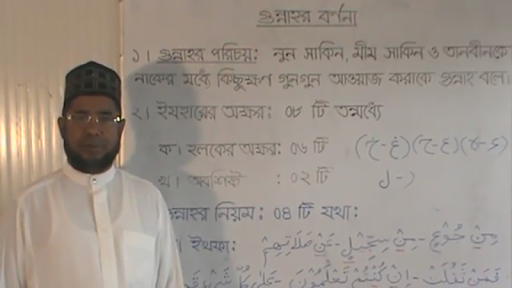 গুন্নাহর বর্ণনা
১। গুন্নাহর পরিচয়: নুন সাকিন, মীম সাকিন ও তানবীনকে
নাকের মধ্যে কিছুক্ষণ গুনগুন আওয়াজ করাকে গুন্নাহ বলে।
২। ইযহারের অক্ষর: ০৮ টি তন্মধ্যে
ক। হলকের অক্ষর: ০৬ টি (ء-ه) (ع-ح) (غ-خ)
খ। অবশিষ্ট : ০২ টি ل - ر
গুন্নাহর নিয়ম: ০৪ টি যথা:
। ইখফা: مِنْ جُوْعٍ - مِنْ سِجِّيْلٍ - عَنْ صَلَاتِهِمْ
فَمَنْ ثَقُلَتْ - اِنْ كُنْتُمْ تَعْلَمُوْنَ